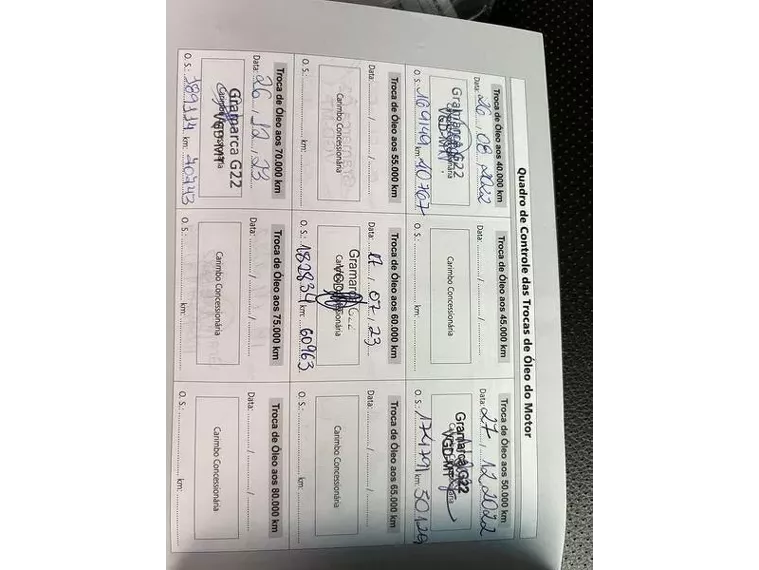 Quadro de Controle das Trocas de Óleo do Motor
Troca de Óleo aos 40.000 km
Data: 26 / 08 / 2022
Gramarca G22
VGD-MT
O. S.: 169149 km: 40767
Troca de Óleo aos 45.000 km
Data: ............ / ............ / ............
Carimbo Concessionária
O. S.: ............ km: ............
Troca de Óleo aos 50.000 km
Data: 27 / 12 / 2022
Gramarca G22
VGD-MT
O. S.: 174791 km: 50129
Troca de Óleo aos 55.000 km
Data: ............ / ............ / ............
Carimbo Concessionária
O. S.: ............ km: ............
Troca de Óleo aos 60.000 km
Data: 17 / 07 / 23
Gramarca G22
O. S.: 182834 km: 60963
Troca de Óleo aos 65.000 km
Data: ............ / ............ / ............
Carimbo Concessionária
O. S.: ............ km: ............
Troca de Óleo aos 70.000 km
Data: 26 / 12 / 23
Gramarca G22
VGD-MT
O. S.: 189114 km: 70743
Troca de Óleo aos 75.000 km
Data: ............ / ............ / ............
Carimbo Concessionária
O. S.: ............ km: ............
Troca de Óleo aos 80.000 km
Data: ............ / ............ / ............
Carimbo Concessionária
O. S.: ............ km: ............